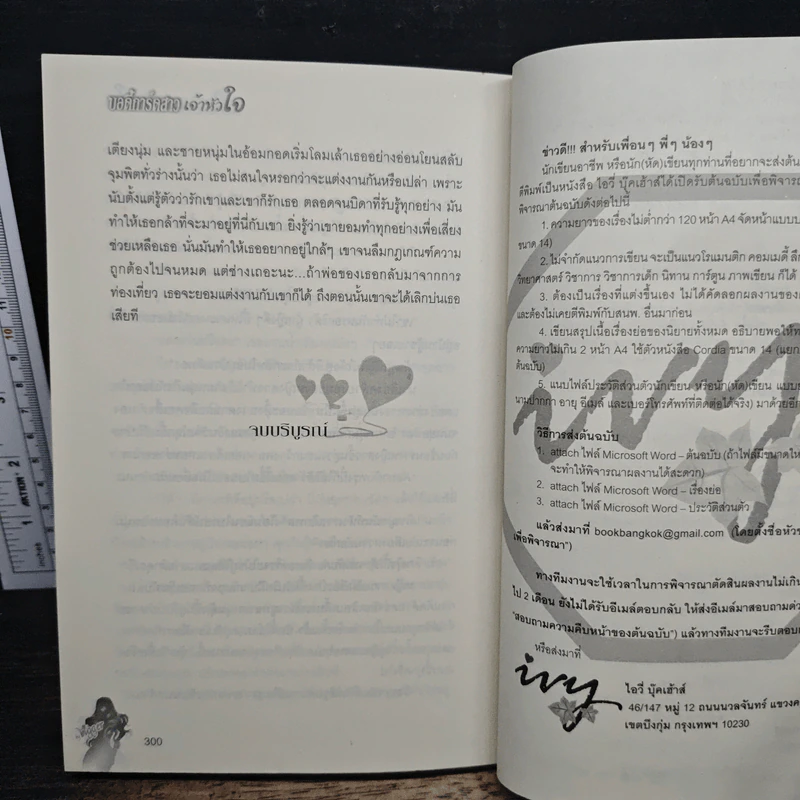 บอดี้การ์ดสาวเจ้าหัวใจ
เตียงนุ่ม และชายหนุ่มในอ้อมกอดเริ่มโลมเล้าเธออย่างอ่อนโยนสลับ
จุมพิตทั่วร่างนั้นว่า เธอไม่สนใจหรอกว่าจะแต่งงานกันหรือเปล่า เพราะ
นับตั้งแต่รู้ตัวว่ารักเขาและเขาก็รักเธอ ตลอดจนบิดาที่รับรู้ทุกอย่าง มัน
ทำให้เธอกล้าที่จะมาอยู่ที่นี่กับเขา ยิ่งรู้ว่าเขายอมทำทุกอย่างเพื่อเสี่ยง
ช่วยเหลือเธอ นั่นมันทำให้เธออยากอยู่ใกล้ๆ เขาจนลืมกฎเกณฑ์ความ
ถูกต้องไปจนหมด แต่ช่างเถอะนะ...ถ้าพ่อของเธอกลับมาจากการ
ท่องเที่ยว เธอจะยอมแต่งงานกับเขาก็ได้ ถึงตอนนั้นเขาจะได้เลิกบ่นเธอ
เสียที
จบบริบูรณ์
300
ข่าวดี!!! สำหรับเพื่อนๆ พี่ๆ น้องๆ
นักเขียนอาชีพ หรือนัก(หัด)เขียนทุกท่านที่อยากจะส่งต้น
ตีพิมพ์เป็นหนังสือ ไอวี่ บุ๊คเฮ้าส์ได้เปิดรับต้นฉบับเพื่อพิจาร
พิจารณาต้นฉบับดังต่อไปนี้
1. ความยาวของเรื่องไม่ต่ำกว่า 120 หน้า A4 จัดหน้าแบบ
ขนาด 14)
2. ไม่จำกัดแนวการเขียน จะเป็นแนวโรแมนติก คอมเมดี้ ลึก
วิทยาศาสตร์ วิชาการ วิชาการเด็ก นิทาน การ์ตูน ภาพเขียน ก็ได้
3. ต้องเป็นเรื่องที่แต่งขึ้นเอง ไม่ได้คัดลอกผลงานของ
และต้องไม่เคยตีพิมพ์กับสนพ. อื่นมาก่อน
4. เขียนสรุปเนื้อเรื่องย่อของนิยายทั้งหมด อธิบายพอให้
ความยาวไม่เกิน 2 หน้า A4 ใช้ตัวหนังสือ Cordia ขนาด 14 (แยก
ต้นฉบับ)
5. แนบไฟล์ประวัติส่วนตัวนักเขียน หรือนัก(หัด)เขียน แบบ
นามปากกา อายุ อีเมล์ และเบอร์โทรศัพท์ที่ติดต่อได้จริง) มาด้วย
วิธีการส่งต้นฉบับ
1. attach ไฟล์ Microsoft Word – ต้นฉบับ (ถ้าไฟล์มีขนาดให
จะทำให้พิจารณาผลงานได้สะดวก)
2. attach ไฟล์ Microsoft Word – เรื่องย่อ
3. attach ไฟล์ Microsoft Word – ประวัติส่วนตัว
แล้วส่งมาที่ bookbangkok@gmail.com (โดยตั้งชื่อหัว
เพื่อพิจารณา")
ทางทีมงานจะใช้เวลาในการพิจารณาตัดสินผลงานไม่เกิน
ไป 2 เดือน ยังไม่ได้รับอีเมล์ตอบกลับ ให้ส่งอีเมล์มาสอบถาม
"สอบถามความคืบหน้าของต้นฉบับ") แล้วทางทีมงานจะรีบตอบ
หรือส่งมาที่
ivy
ไอวี่ บุ๊คเฮ้าส์
46/147 หมู่ 12 ถนนนวลจันทร์ แขวงค
เขตบึงกุ่ม กรุงเทพฯ 10230